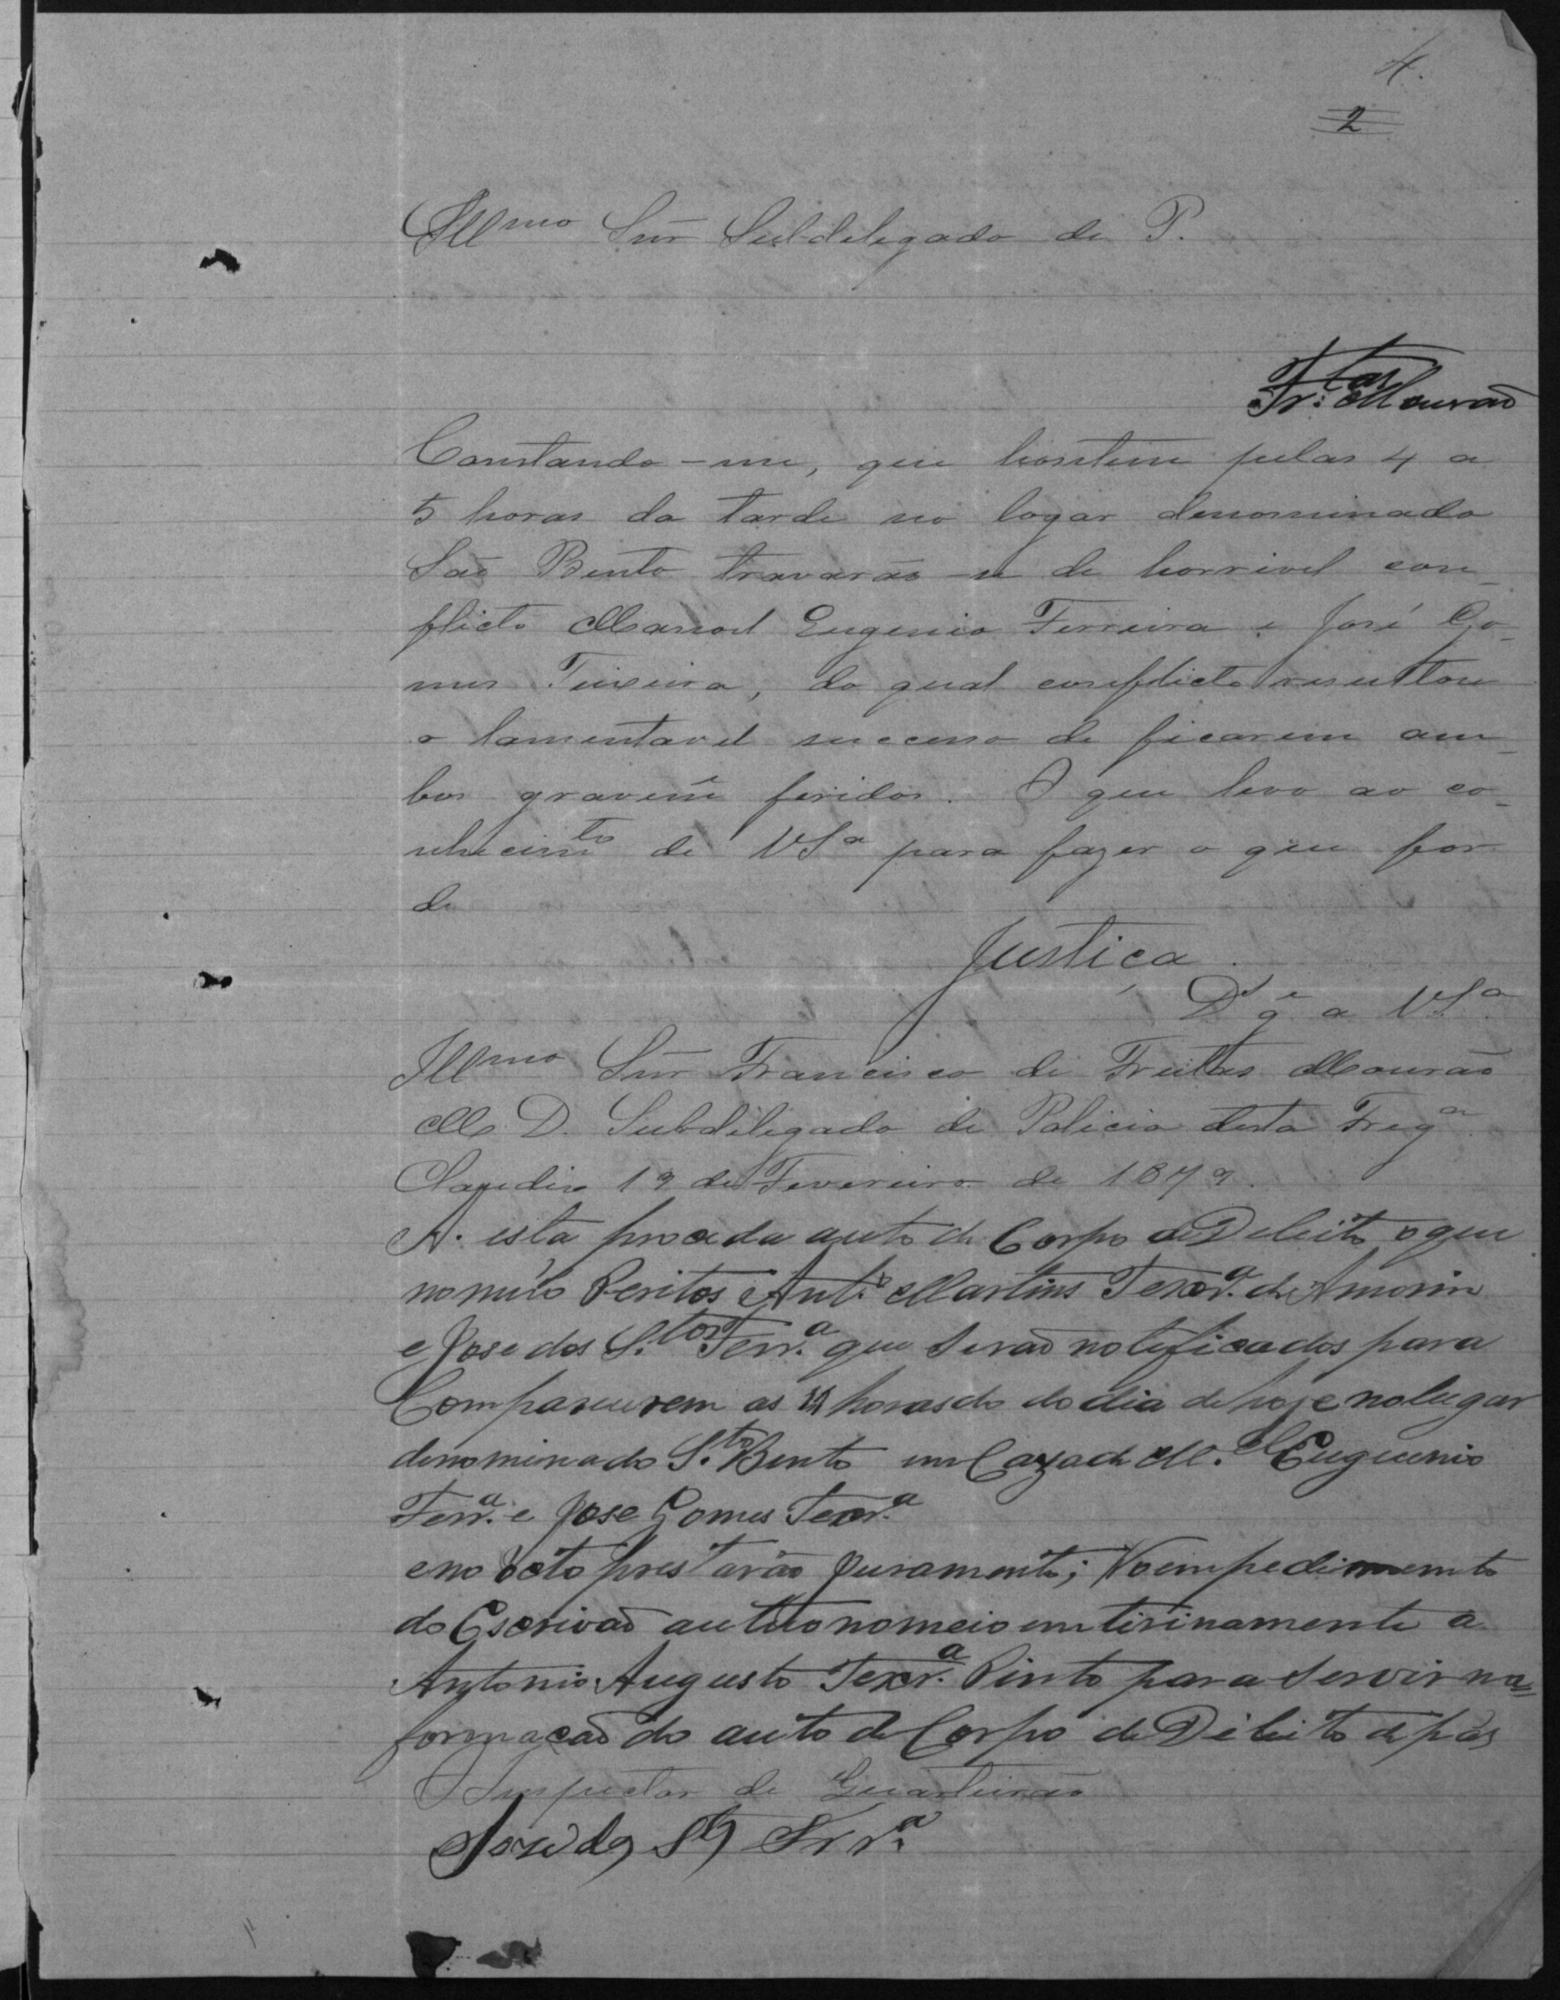 4.
2
Illmo Snr Subdelegado de P.
Ftas
Fr. Mourão
Constando-me, que hontem pelas 4 a
5 horas da tarde no logar denominado
São Bento travarão-se de horrivel con_
flicto Manoel Eugenio Ferreira e José Go_
mes Teixeira, do qual conflicto resultou
o lamentavel successo de ficarem am_
bos gravemte feridos. O que levo ao co_
nhecimto de VSa para fazer o que for
de
Justiça.
Ds ge a VSa
Illmo Snr Francisco de Freitas Mourão
M. D. Subdelegado de Policia desta Frega
Claudio 19 de Fevereiro de 1879.
A. esta proceda auto de Corpo de Delicto o que
nomeio Peritos Anto. Martins Texra. de Amorim
e Jose dos S.tos Ferr.a que serão notificados para
Comparecerem as 11 horas do do dia de hoje no lugar
denominado S.to Bento em Caza de M.el Euguenio
Ferr.a e Jose Gomes Texr.a
e no acto prestarão Juramento; No empedimemto
do Escrivão autuo nomeio interinamente a
Antonio Augusto Texr.a Pinto para servir na
formação do auto de Corpo de Delicto de pas
O Inspector de Quarteirão
Jose dos Stos Frra.